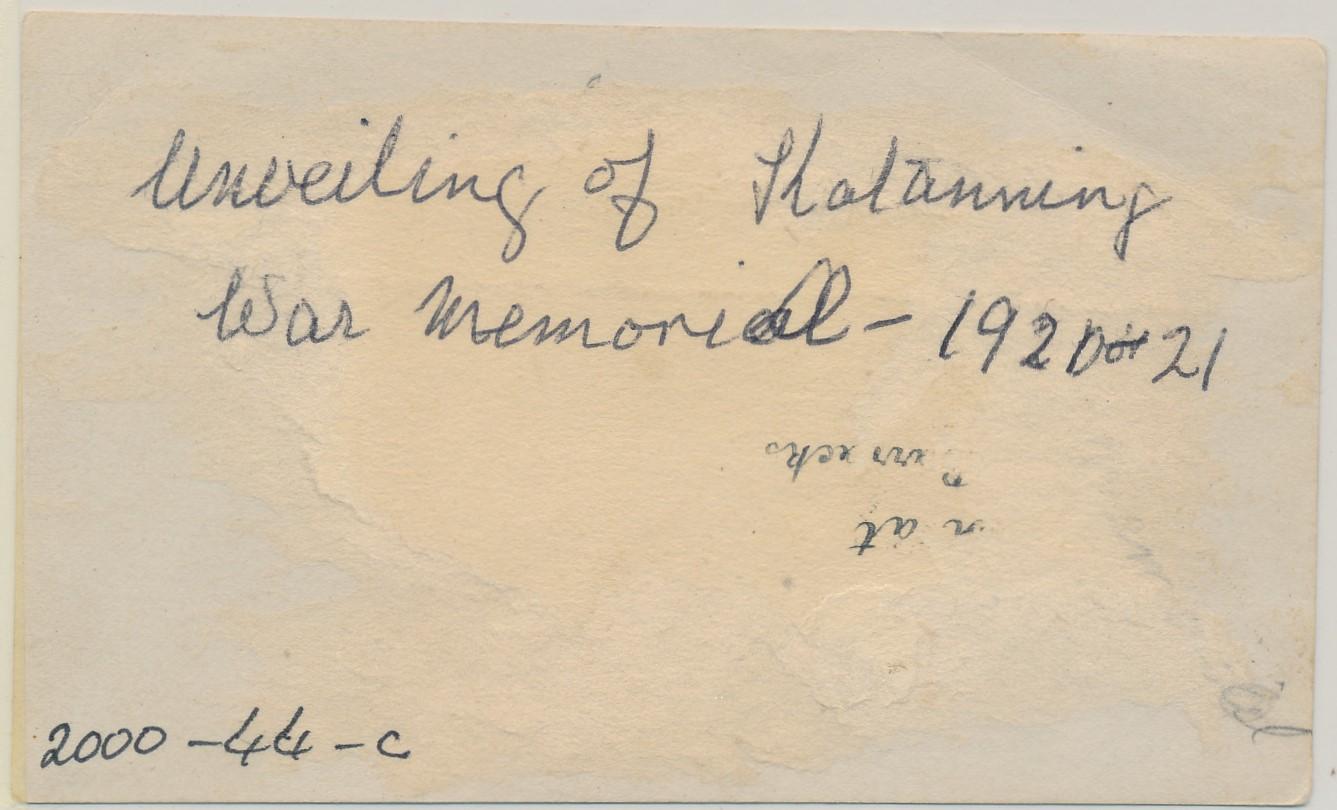 Unveiling of Katanning
War Memorial - 1920 or 21
n at
2000-44-c